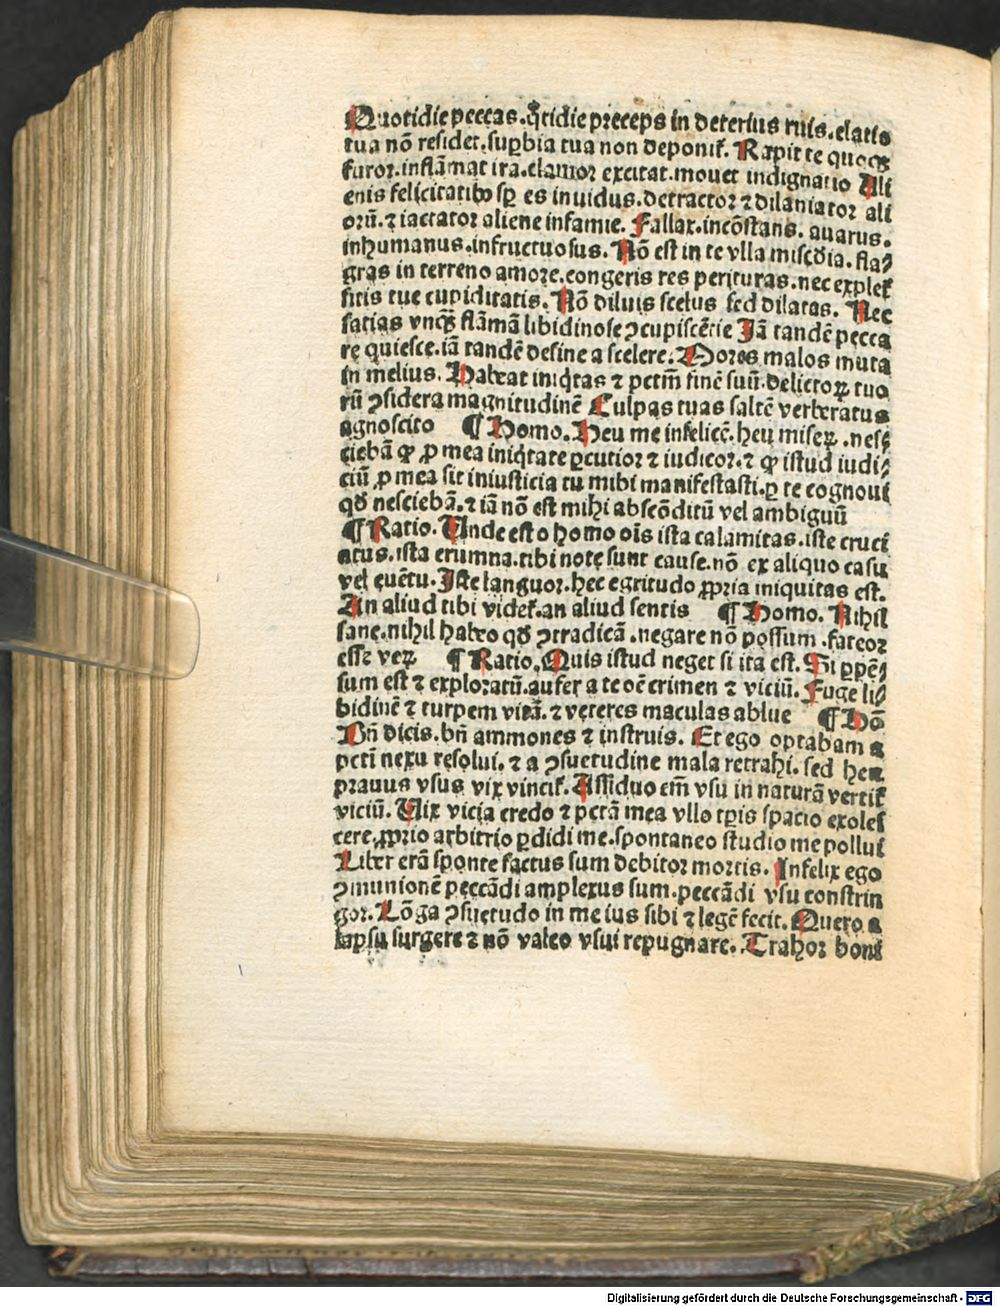 Quotidie peccas. q̊tidie preceps in deterius ruis. elatio
tua nō residet. suꝑbia tua non deponiť. Rapit te quoqꝫ
furor. inflāmat ira. clamor excitat. mouet indignatio Ali
enis felicitatibꝰ sꝑ es inuidus. detractor ⁊ dilaniator ali
orū. ⁊ iactator aliene infamie. Fallax. incōstans. auarus.
inhumanus. infructuosus. Nō est in te vlla misc̄dia. fla⸗
gras in terreno amore. congeris res perituras. nec expleť
sitis tue cupiditatis. Nō diluis scelus sed dilatas. Nec
satias vnq̄ȝ flāmā libidinose ꝯcupiscētie Jā tandē pecca
re quiesce. iā tandē desine a scelere. Mores malos muta
in melius. Habeat iniq̇tas ⁊ pctm̄ finē suū. delictoꝝ tuo
rū ꝯsidera magnitudinē Culpas tuas saltē verberatus
agnoscito ¶ Homo. Heu me infelicē. heu miseꝝ. nes⸗
ciebā ꝙ ꝓ mea iniq̇tate ꝑcutior ⁊ iudicor. ⁊ ꝙ istud iudi⸗
ciū ꝓ mea sit iniusticia tu mihi manifestasti. ꝑ te cognoui
qđ nesciebā. ⁊ iā nō est mihi abscōditū vel ambiguū
¶ Ratio. Unde est o homo oīs ista calamitas. iste cruci
atus. ista erumna. tibi note sunt cause. nō ex aliquo casu
vel euētu. Iste languor. hec egritudo ꝓpria iniquitas est.
An aliud tibi videť. an aliud sentis ¶ Homo. Nihil
sane. nihil habeo qđ ꝯtradicā. negare nō possum. fateor
esse veꝝ ¶ Ratio. Quis istud neget si ita est. Si ꝑpē⸗
sum est ⁊ exploratū. aufer a te oē crimen ⁊ viciū. Fuge li⸗
bidinē ⁊ turpem vitā. ⁊ veteres maculas ablue ¶ Hō
Bn̄ dicis. bn̄ ammones ⁊ instruis. Et ego optabam a
pcti nexu resolui. ⁊ a ꝯsuetudine mala retrahi. sed heu
prauus vsus vix vinciť. Assiduo em̄ vsu in naturā vertiť
viciū. Uix vicia credo ⁊ pctā mea vllo tp̄is spacio exoles
cere. ꝓprio arbitrio ꝑdidi me. spontaneo studio me pollui
Liber erā sponte factus sum debitor mortis. Infelix ego
ꝯmunionē peccādi amplexus sum. peccādi vsu constrin
gor. Lōga ꝯsuetudo in me ius sibi ⁊ legē fecit. Quero a
lapsu surgere ⁊ nō valeo vsui repugnare. Trahor boni
Digitalisierung gefördert durch die Deutsche Forschungsgemeinschaft - DFG